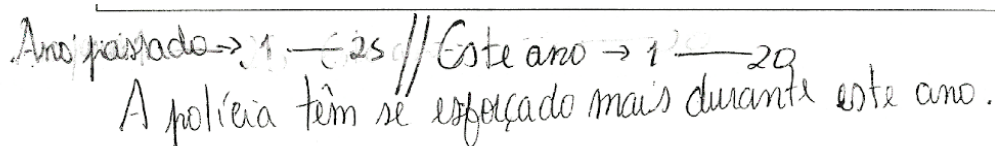 Ano passado → 1 — 25 // Este ano → 1 — 20
A polícia têm se esforçado mais durante este ano.